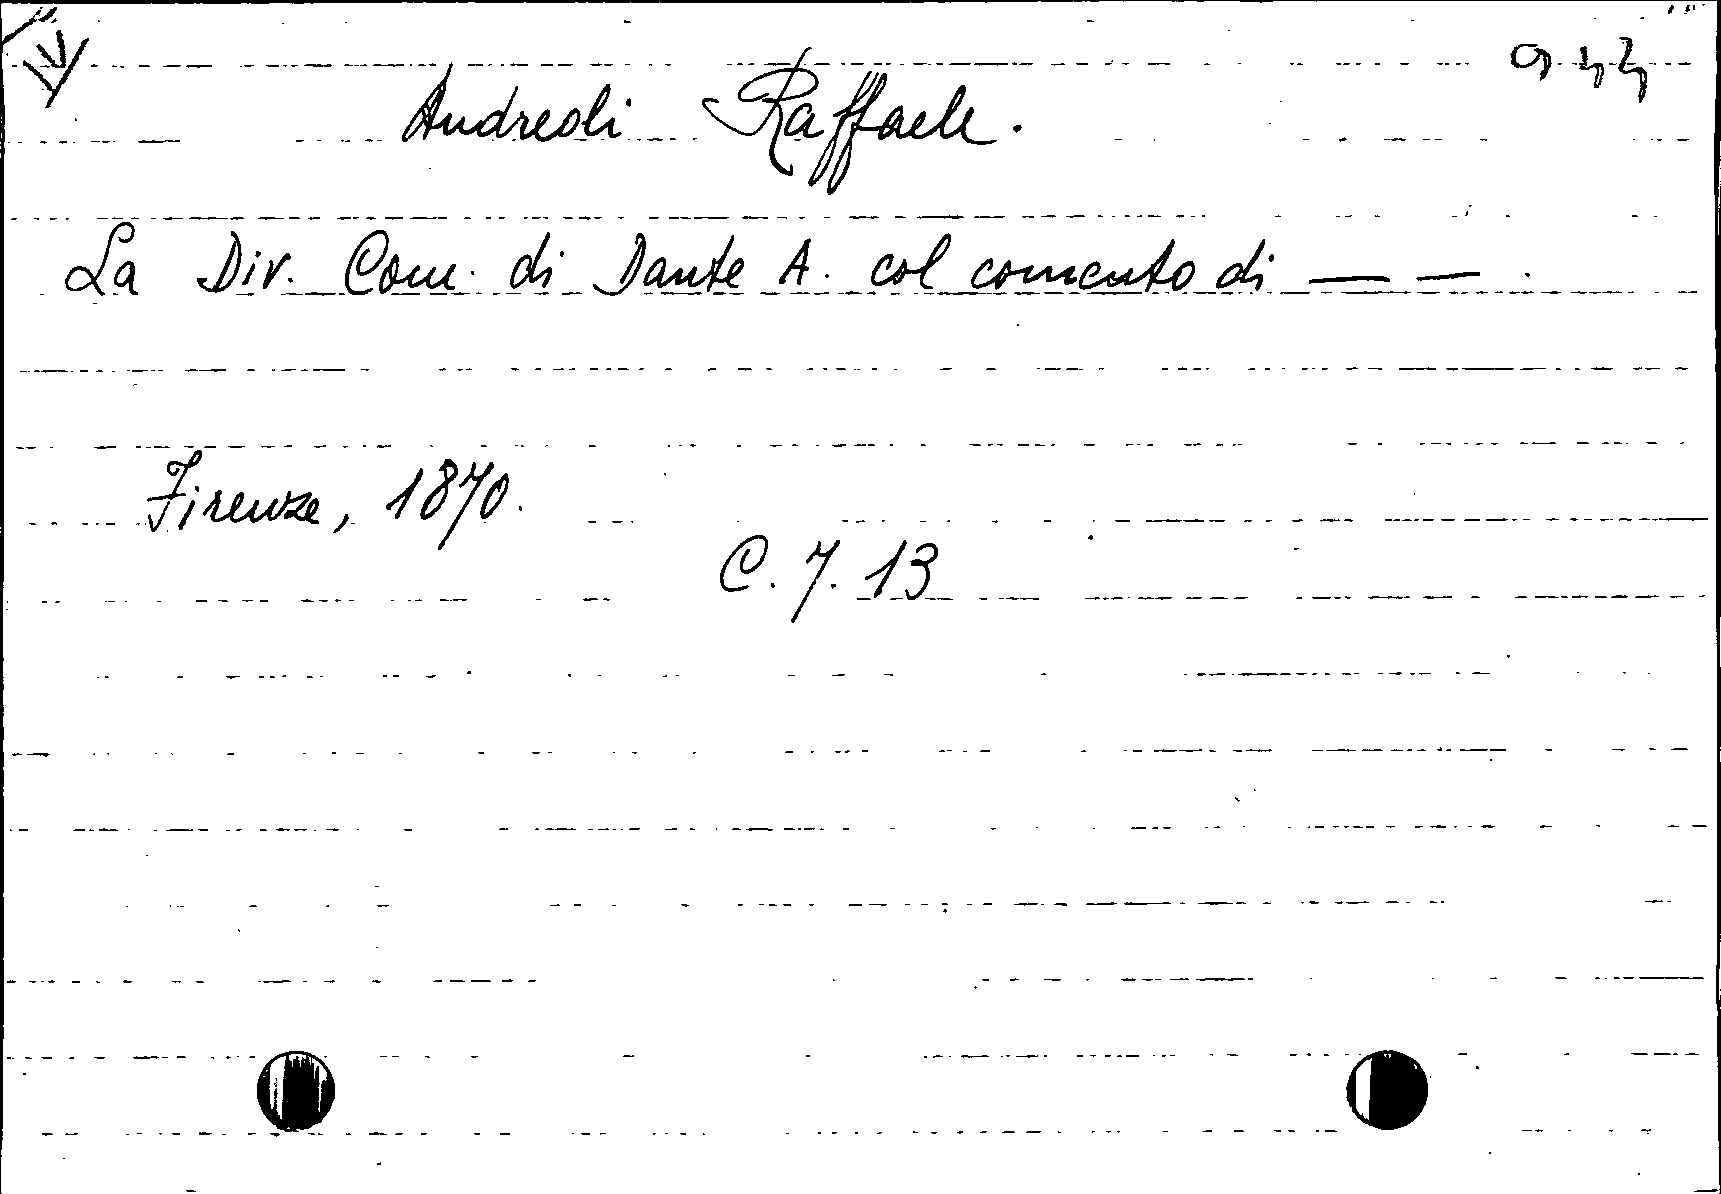 IV
Andreoli Raffaele.
La Div. Com. di Dante A. col comento di — — .
Firenze, 1870.
C. 7. 13